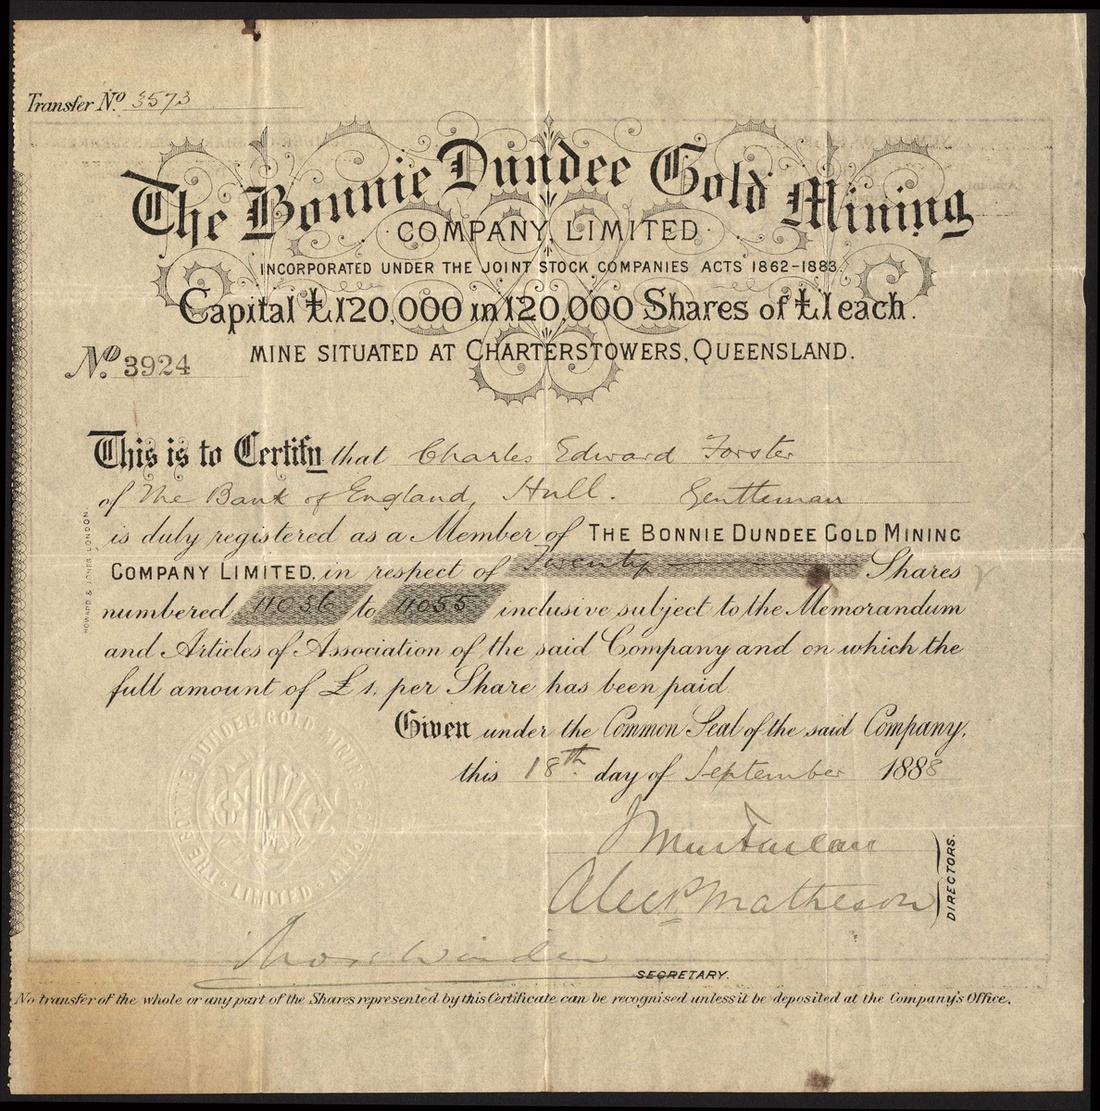 Transfer No. 3573
The Bonnie Dundee Gold Mining
COMPANY, LIMITED
INCORPORATED UNDER THE JOINT STOCK COMPANIES ACTS 1862-1883.
Capital £120,000 in 120,000 Shares of £1 each.
No. 3924
MINE SITUATED AT CHARTERSTOWERS, QUEENSLAND.
This is to Certify that Charles Edward Forster
of The Bank of England, Hull. Gentleman
is duly registered as a Member of THE BONNIE DUNDEE GOLD MINING
COMPANY LIMITED, in respect of Twenty Shares
numbered 11036 to 11055 inclusive subject to the Memorandum
and Articles of Association of the said Company and on which the
full amount of £1, per Share has been paid.
Given under the Common Seal of the said Company,
this 18th day of September 1888
J Macfarlan
Alecr Matheson
DIRECTORS.
SECRETARY.
No transfer of the whole or any part of the Shares represented by this Certificate can be recognised unless it be deposited at the Company's Office.
HOWARD & JONES LONDON.
THE BONNIE DUNDEE GOLD MINING COMPANY LIMITED